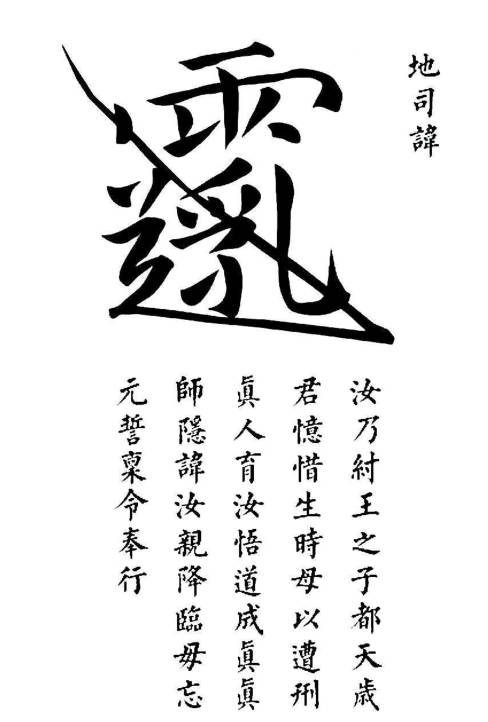 地司諱
汝乃紂王之子都天歲
君憶惜生時母以遭刑
眞人育汝悟道成眞眞
師隱諱汝親降臨毋忘
元誓稟令奉行